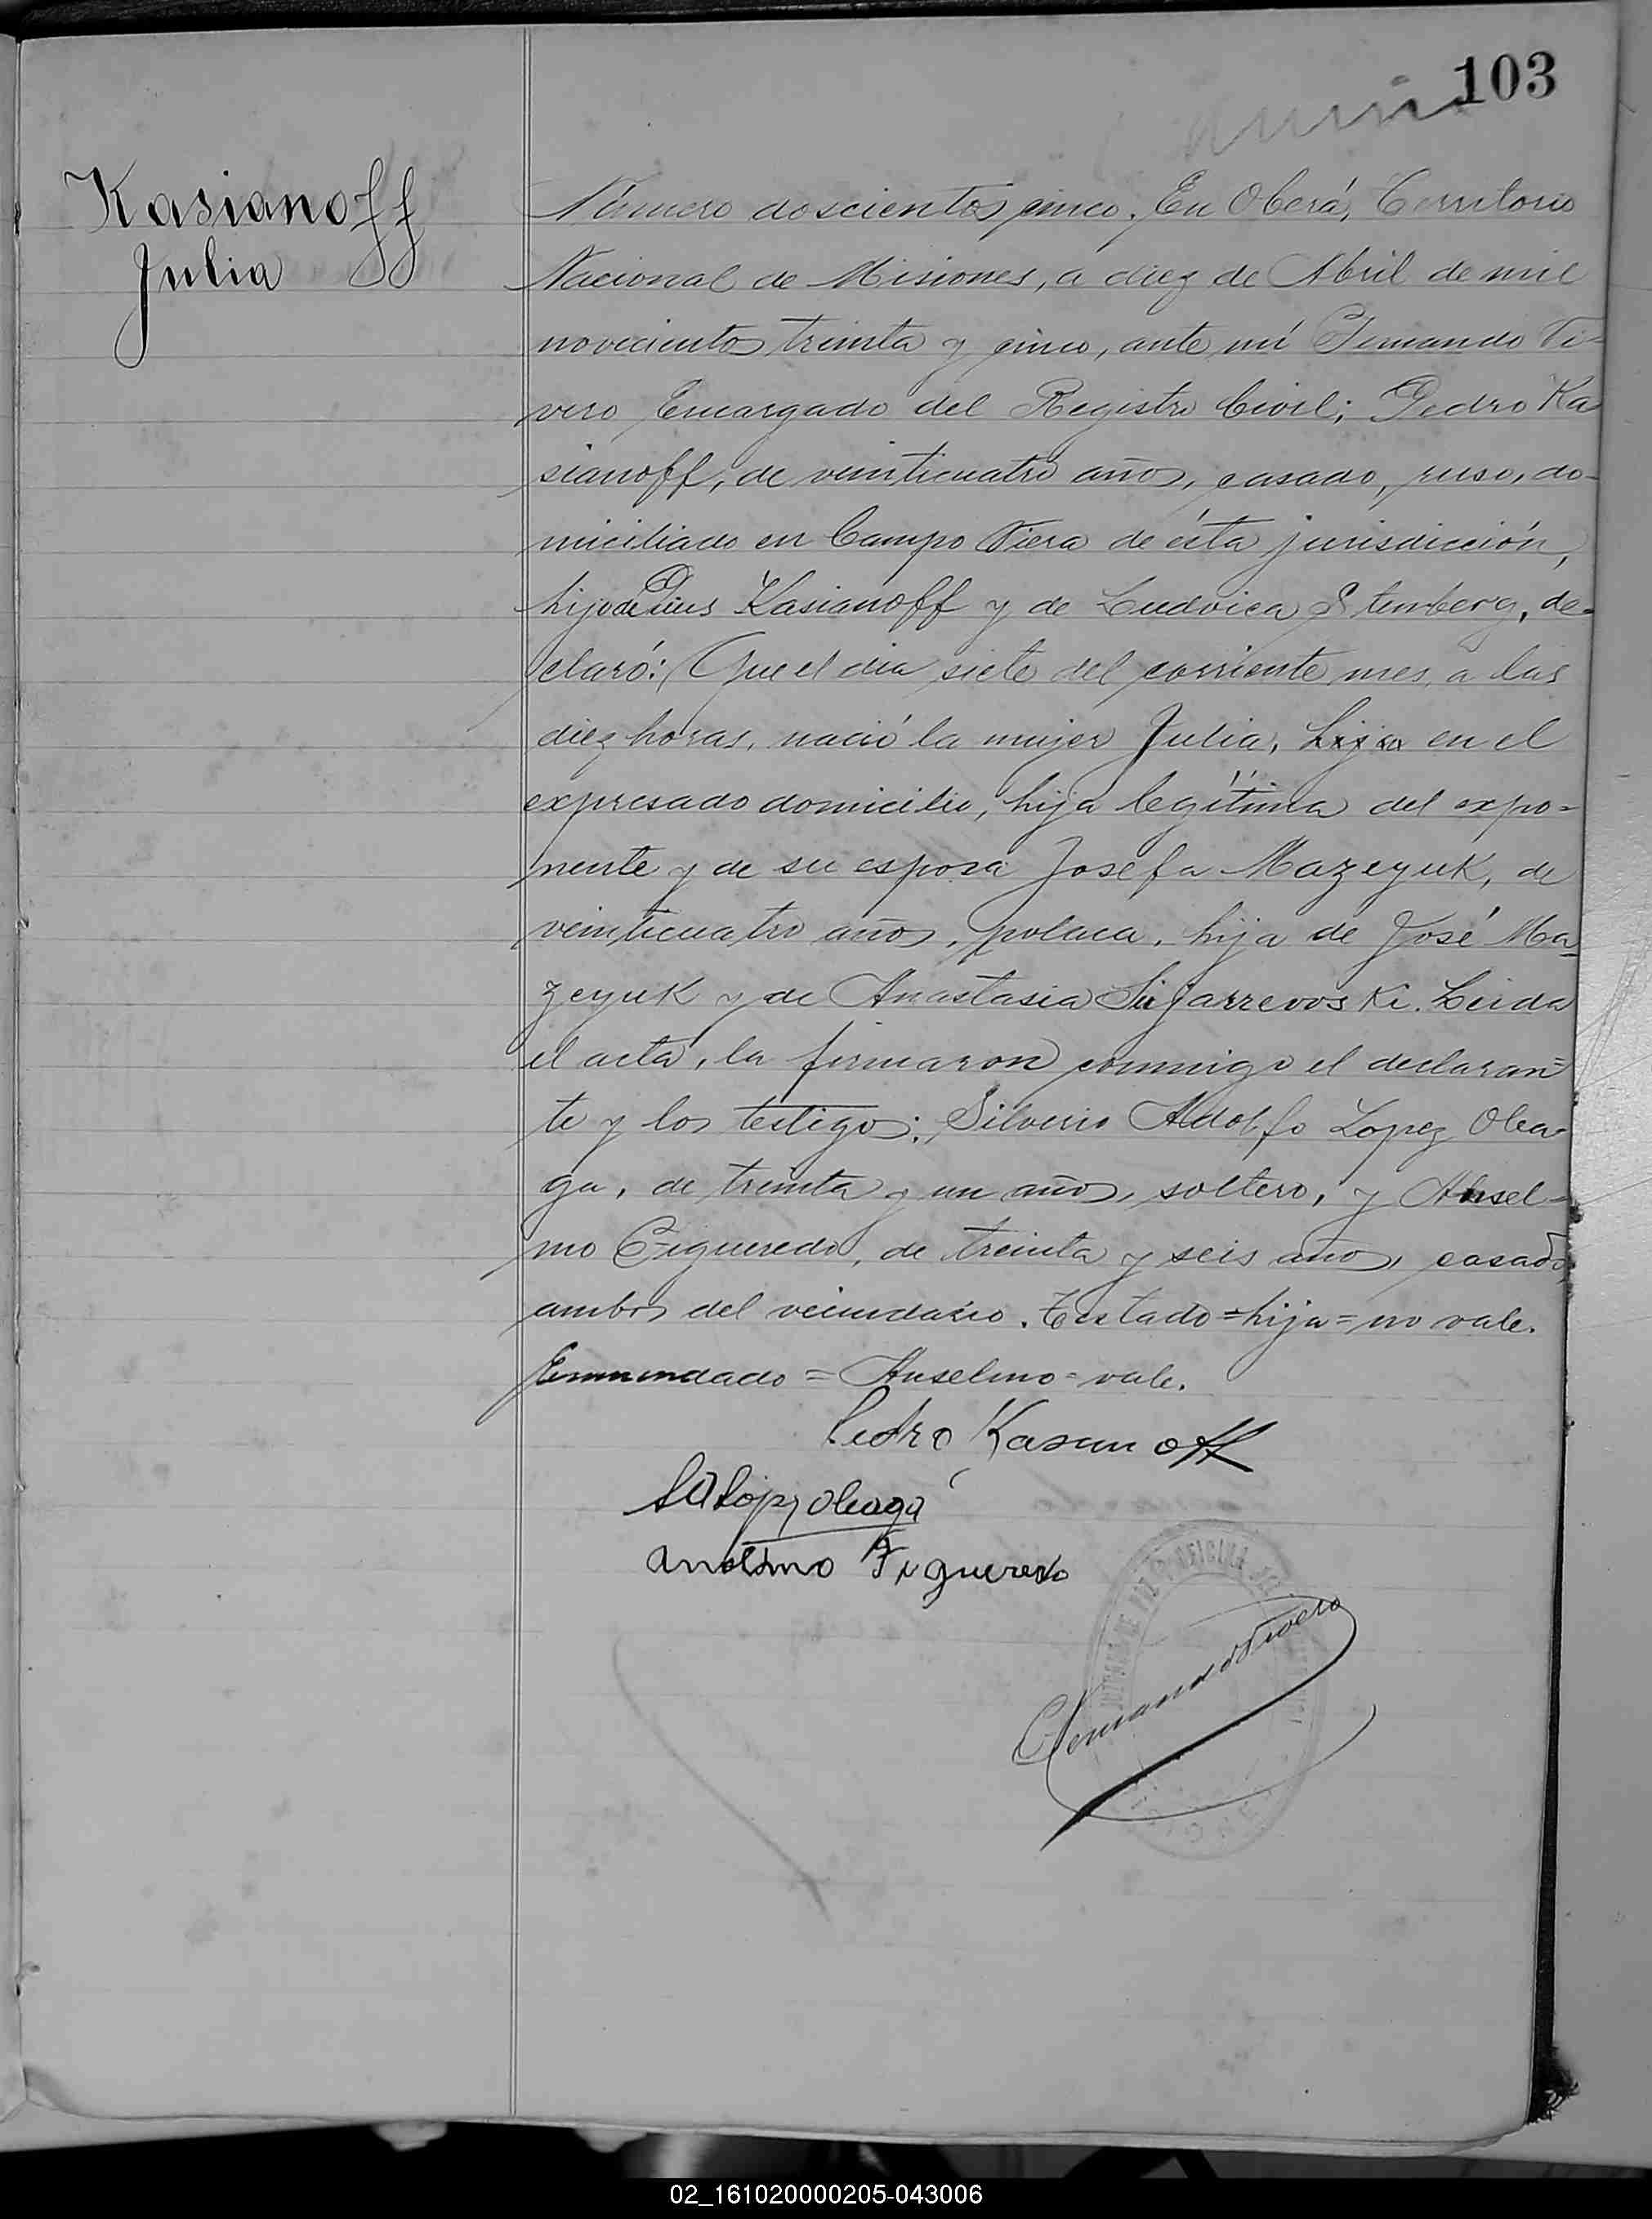 103
Kasianoff
Julia
Número doscientos cinco. En Oberá, Territorio
Nacional de Misiones, a diez de Abril de mil
novecientos treinta y cinco, ante mí Fernando Vi-
vero Encargado del Registro Civil; Pedro Ka
sianoff, de veinticuatro años, casado, ruso, do-
miciliado en Campo Viera de ésta jurisdicción,
hijo de Pius Kasianoff y de Ludvica Stenberg, de-
claró: Que el dia siete del corriente mes, a las
diez horas, nació la mujer Julia, hija en el
expresado domicilio, hija legítima del expo-
nente y de su esposa Josefa Mazeyuk, de
veinticuatro años, polaca, hija de José Ma-
zeyuk y de Anastasia Leida
el acta, la firmaron conmigo el declaran-
te y los testigos: Silverio Adolfo Lopez Olea-
ga, de treinta y un años, soltero, y Ansel-
mo Figueredo, de treinta y seis años, casado
ambos del vecindario. Testado = hija = no vale.
Enmendado = Anselmo = vale.
Pedro Kasianoff
SALópez Oleaga
Anselmo Figueredo
Fernando Vivero
02_161020000205-043006